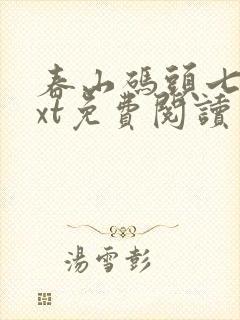 春山碼頭七
xt免費閱讀
湯雪彭